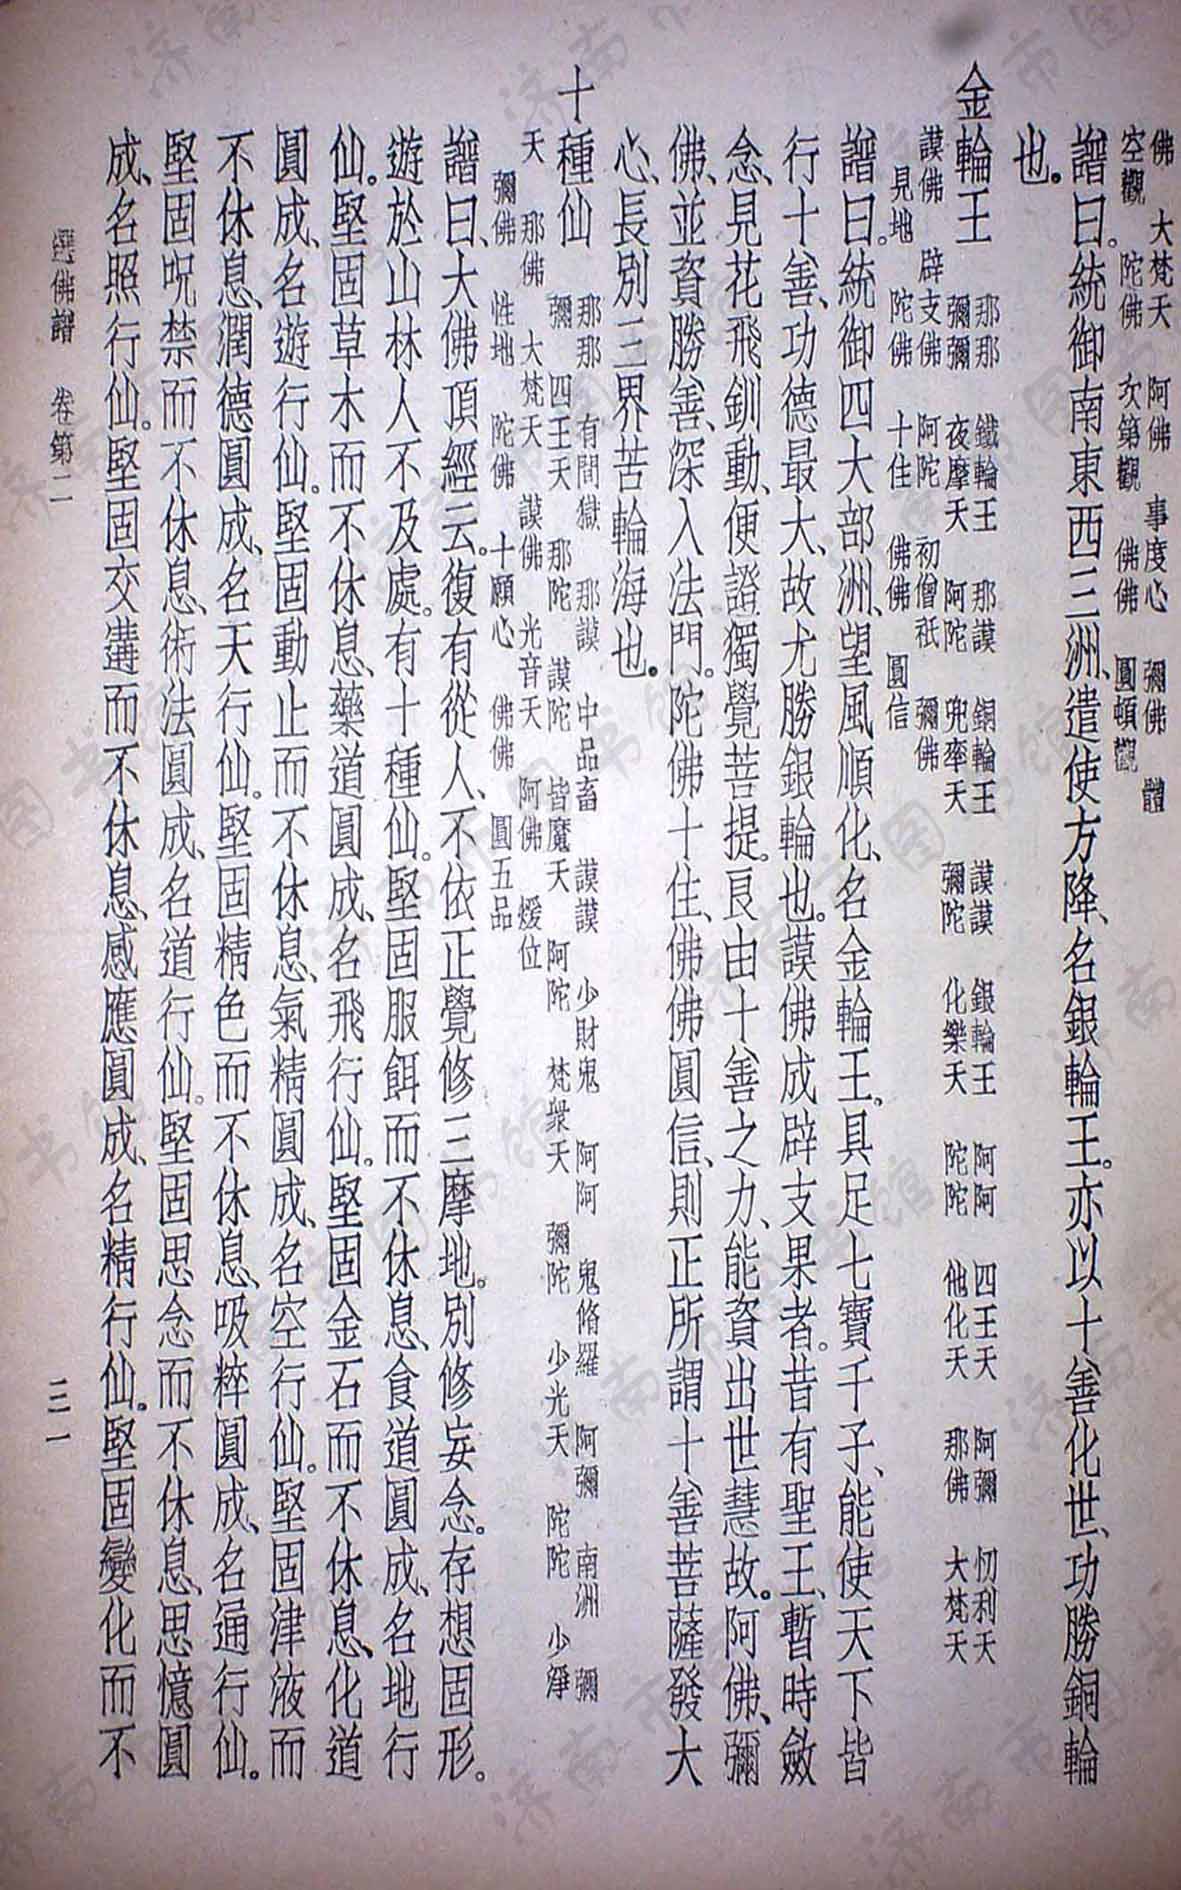 佛　大梵天　阿佛　事度心　彌佛　體
空觀　陀佛　次第觀　佛佛　圓頓觀
譜曰。統御南東西三洲、遣使方降、名銀輪王。亦以十善化世、功勝銅輪
也。
金輪王　那那　鐵輪王　那謨　銅輪王　謨謨　銀輪王　阿阿　四王天　阿彌　忉利天
彌彌　夜摩天　阿陀　兜率天　彌陀　化樂天　陀陀　他化天　那佛　大梵天
謨佛　辟支佛　阿陀　初僧祇　彌佛
見地　陀佛　十住　佛佛　圓信
譜曰。統御四大部洲、望風順化、名金輪王。具足七寶千子、能使天下皆
行十善、功德最大、故尤勝銀輪也。謨佛成辟支果者。昔有聖王、暫時斂
念、見花飛釧動、便證獨覺菩提。良由十善之力、能資出世慧故。阿佛、彌
佛、並資勝善、深入法門。陀佛十住、佛佛圓信、則正所謂十善菩薩發大
心、長別三界苦輪海也。
十種仙　那那　有間獄　那謨　中品畜　謨謨　少財鬼　阿阿　鬼脩羅　阿彌　南洲　彌
彌　四王天　那陀　謨陀　皆魔天　阿陀　梵衆天　彌陀　少光天　陀陀　少淨
天　那佛　大梵天　謨佛　光音天　阿佛　煖位
彌佛　性地　陀佛　十願心　佛佛　圓五品
譜曰、大佛頂經云。復有從人、不依正覺修三摩地。別修妄念。存想固形。
遊於山林人不及處。有十種仙。堅固服餌而不休息、食道圓成、名地行
仙。堅固草木而不休息、藥道圓成、名飛行仙。堅固金石而不休息、化道
圓成、名遊行仙。堅固動止而不休息、氣精圓成、名空行仙。堅固津液而
不休息、潤德圓成、名天行仙。堅固精色而不休息、吸粹圓成、名通行仙。
堅固呪禁而不休息、術法圓成、名道行仙。堅固思念而不休息、思憶圓
成、名照行仙。堅固交遘而不休息、感應圓成、名精行仙。堅固變化而不
選佛譜　卷第二　三一